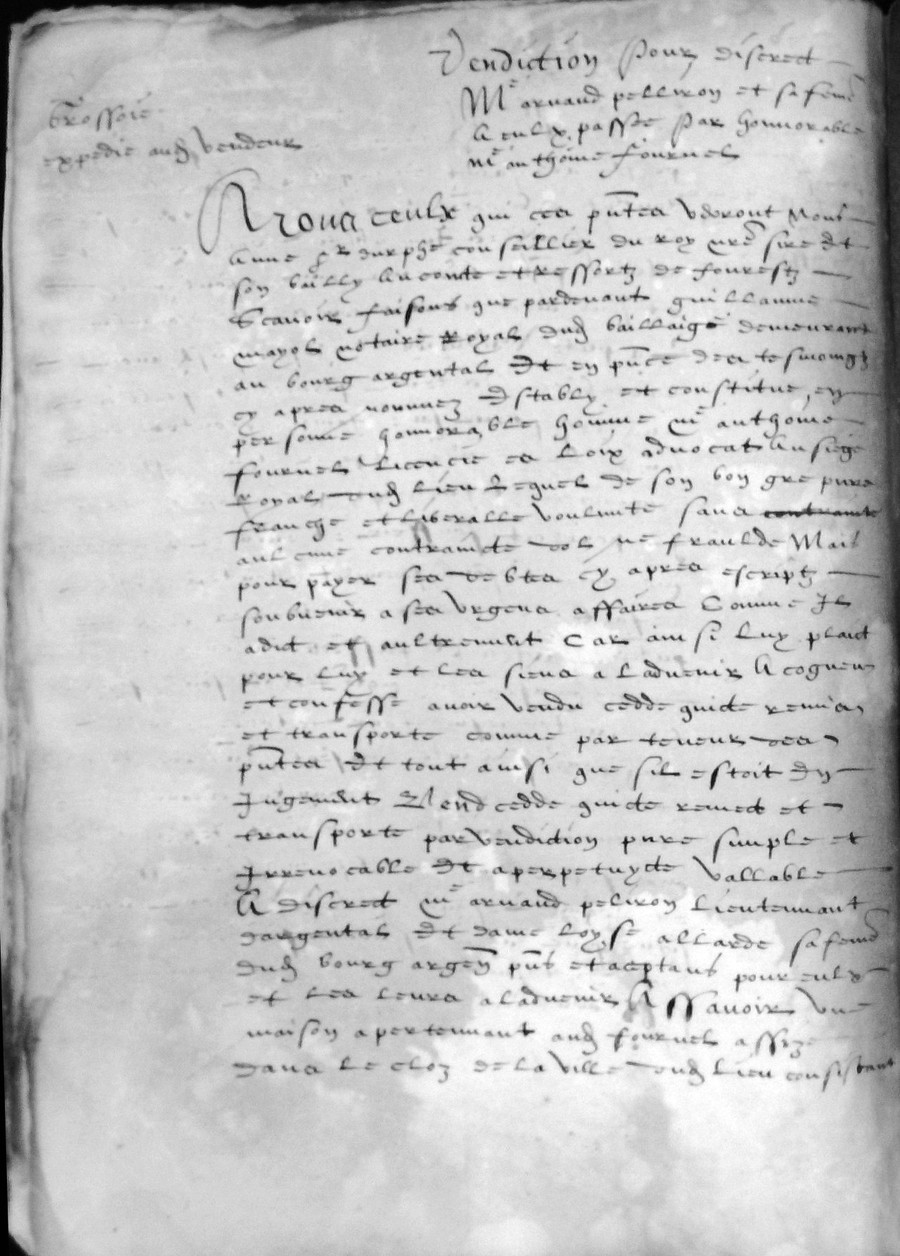 Vendiction pour discrect
Me arnaud pelliron et sa feme
A eulx passée par honnorable
me anthoine fournel
Grossoié
expedié aud vendeur
A tous ceulx qui ces pntes verront Nous
Anne sr durphé conseillier du roy nre sire Et
son bailly Au conte et ressortz de fourestz
Scavoir faisons que pardevant guillaume
mayol notaire Royal dud bailliaige demeurant
au bourg argental Et en pnce des tesmoingz
cy apres nommez Estably et constitue en
personne honnorable homme me anthoine
fournel Licencie es Loix advocat Au siege
Royal dud Lieu Lequel de son bon gre pure
franche et Liberalle voulunte sans contraincte
aulcune contraincte dol ne fraulde Mais
pour payer ses debtes cy apres escriptz
soubvenir a ses urgens affaires Comme Il
a dict et aultrement Car ainsi Luy plaict
pour Luy et Les siens a Ladvenir A cogneu
et confesse avoir vendu cedde quicte remis
et transporte comme par teneur des
pntes Et tout ainsi que sil estoit En
Jugement Vend cedde quicte remect et
transporte par vendiction pure simple et
Irrevocable Et a perpetuyte vallable
A discrect me arnaud peliron Lieutennant
dargental Et dame Loyse allarde sa feme
dud bourg argen pns et aceptans pour eulx
et Les Leurs a Ladvenir Assavoir une
maison apertennant aud fournel assize
dans Le cloz de La ville dud Lieu consistant